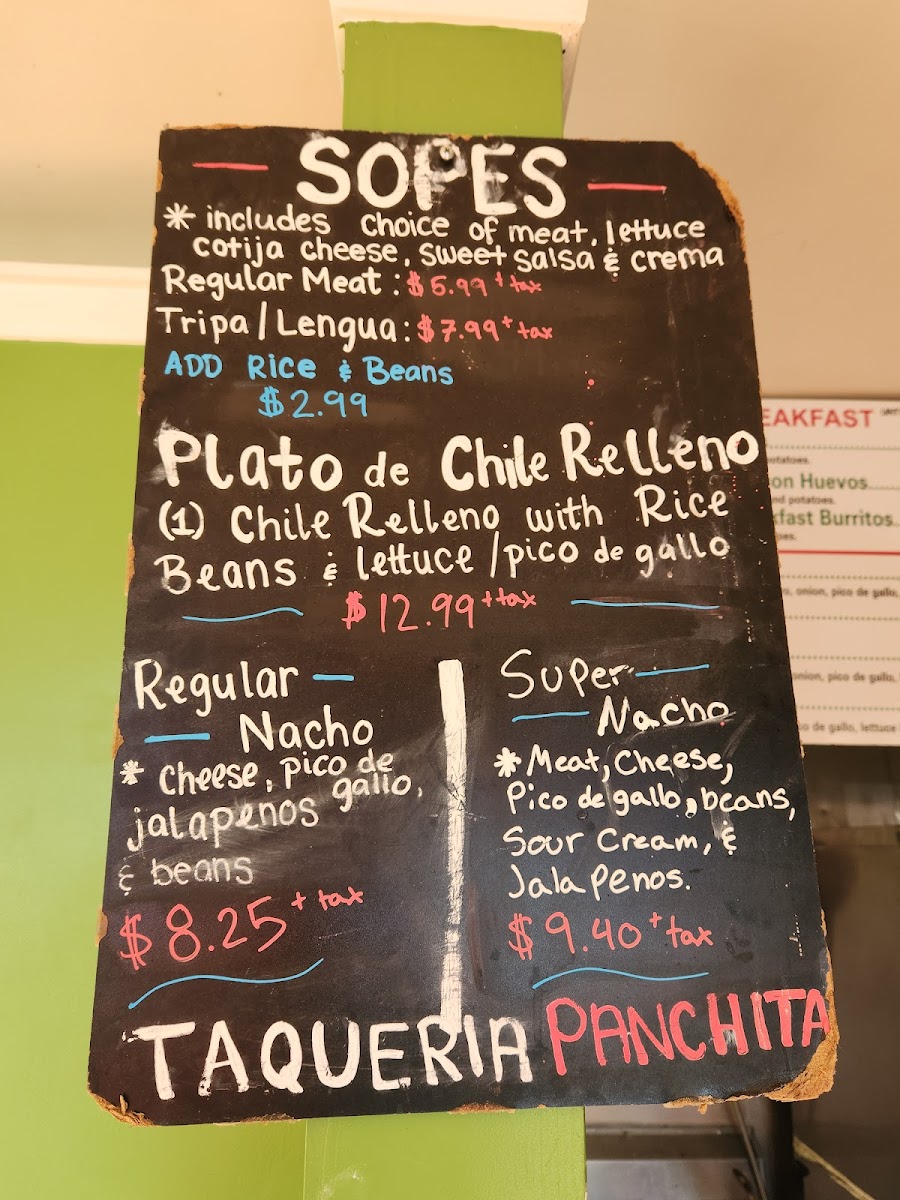 SOPES
* includes choice of meat, lettuce
cotija cheese, sweet salsa & crema
Regular Meat : $5.99 + tax
Tripa/Lengua: $7.99 + tax
ADD Rice & Beans
$2.99
Plato de Chile Relleno
(1) Chile Relleno with Rice
Beans & lettuce/pico de gallo
$12.99 + tax
Regular
Nacho
* Cheese, pico de
gallo,
jalapenos
& beans
$8.25 + tax
Super
Nacho
* Meat, Cheese,
Pico de gallo, beans,
Sour Cream, &
Jalapenos.
$9.40 + tax
TAQUERIA PANCHITA
EAKFAST
potatoes.
on Huevos
nd potatoes.
kfast Burritos
o, onion, pico de gallo,
onion, pico de gallo,
o de gallo, lettuce